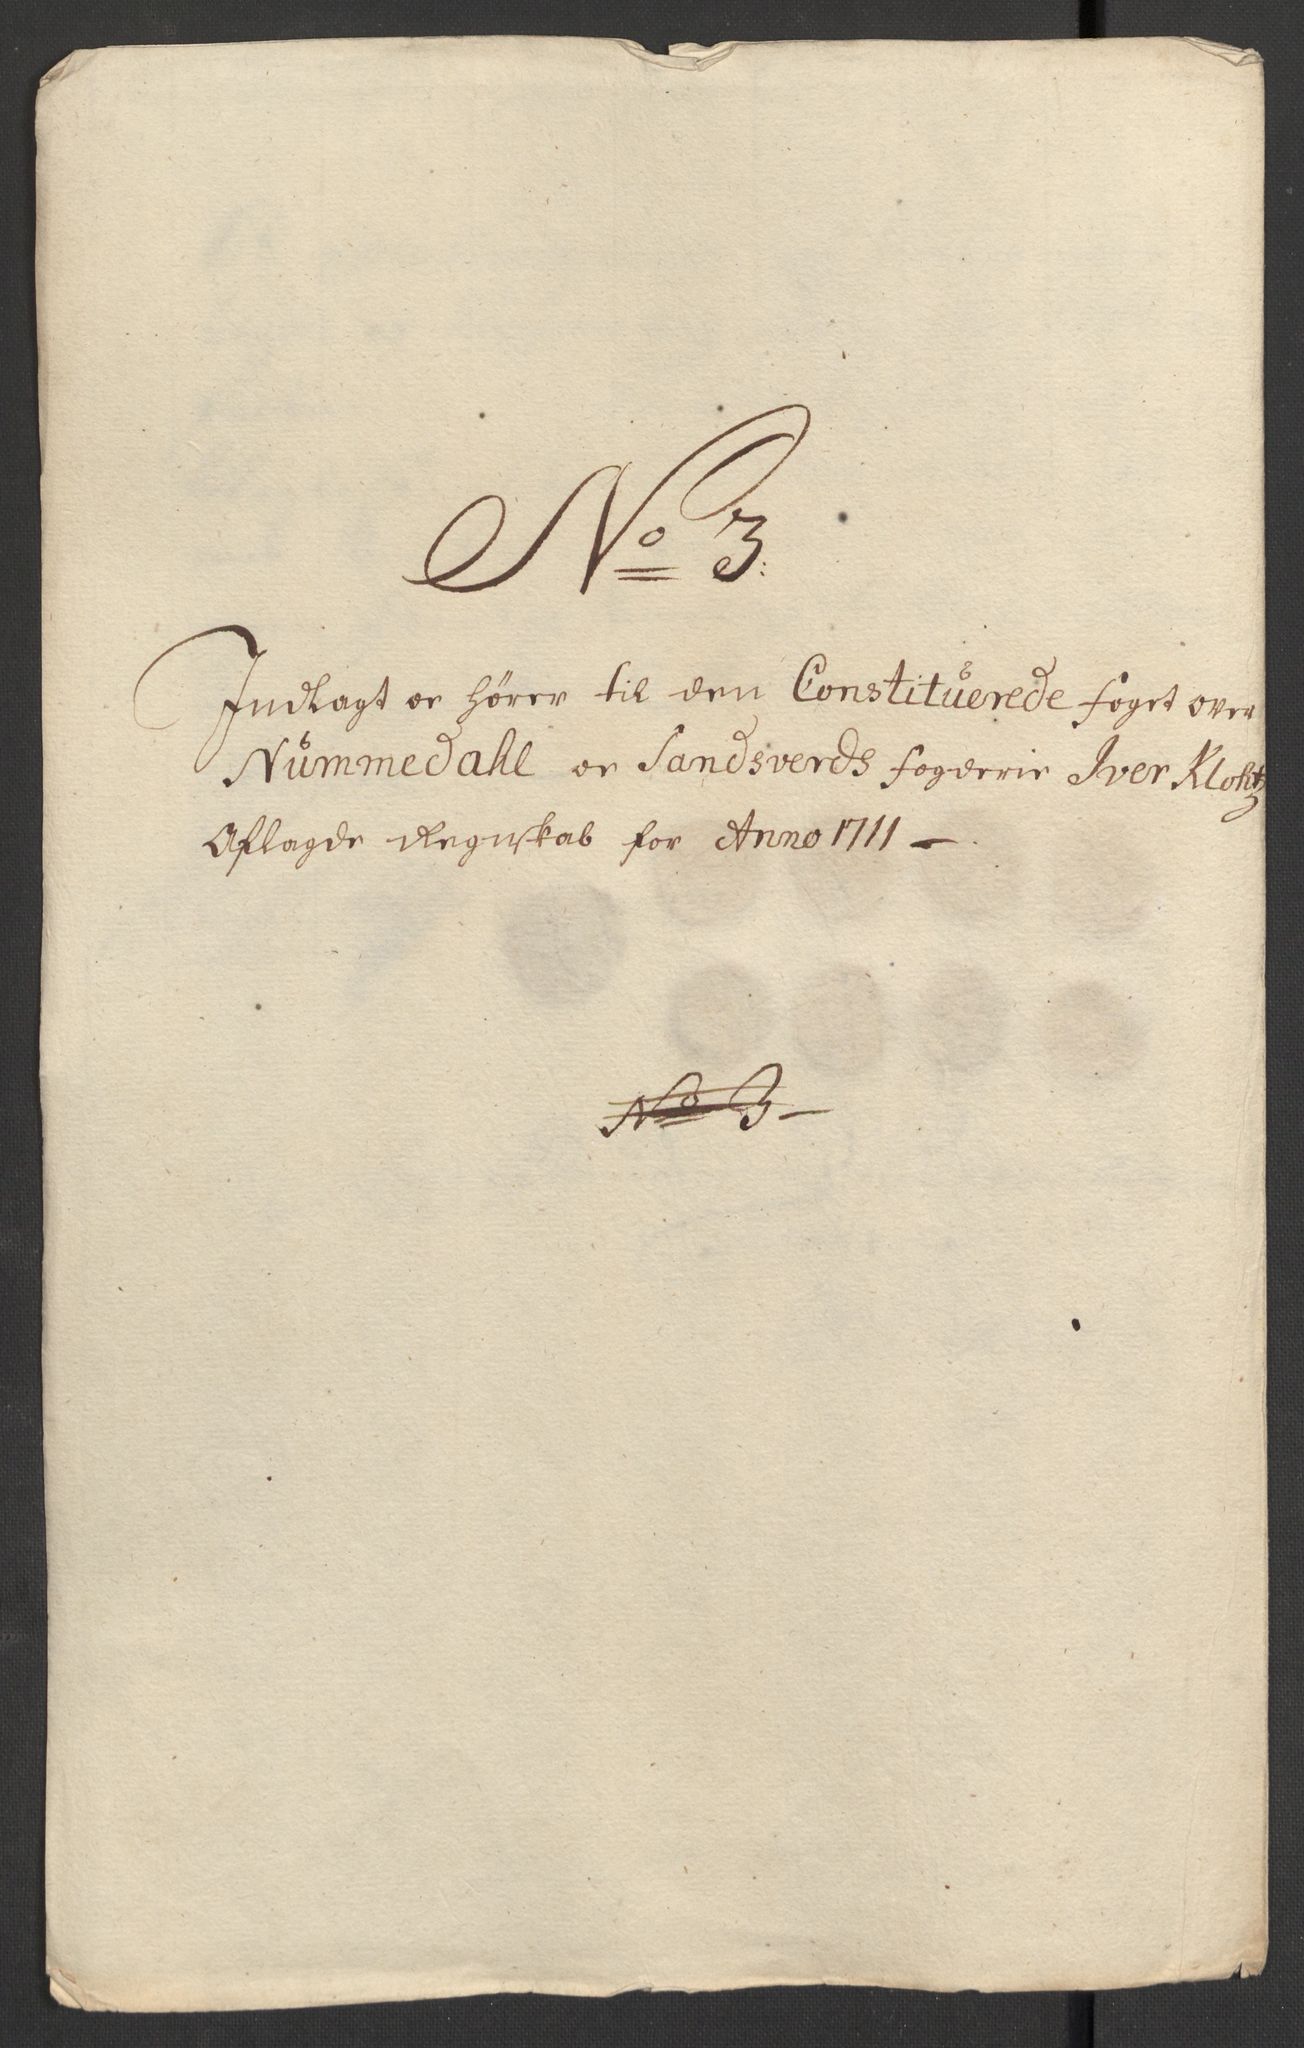 No 3:
Indlagt oc hører til den Constituerede foget over
Nummedahl oc Sandsverds fogderie Iver Klohtz
Aflagde Regnskab for Anno 1711 –
No 3 –